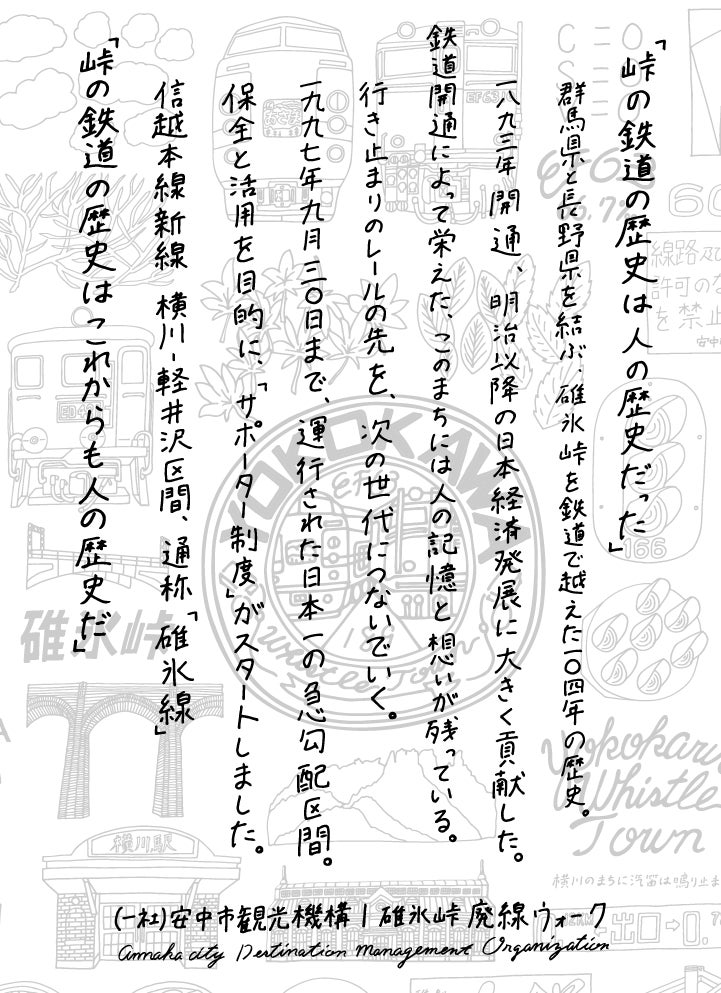 「峠の鉄道の歴史は人の歴史だった」
群馬県と長野県を結ぶ、碓氷峠を鉄道で越えた一〇四年の歴史。
一八九三年開通、明治以降の日本経済発展に大きく貢献した。
鉄道開通によって栄えた、このまちには人の記憶と想いが残っている。
行き止まりのレールの先を、次の世代につないでいく。
一九九七年九月三〇日まで、運行された日本一の急勾配区間。
保全と活用を目的に、「サポーター制度」がスタートしました。
信越本線新線 横川-軽井沢区間、通称「碓氷線」
「峠の鉄道の歴史はこれからも人の歴史だ」
(一社)安中市観光機構|碓氷峠廃線ウォーク
Annaka city Destination Management Organization
YOKOKAWA
Whistle Town
碓氷峠
横川駅
Yokokawa
Whistle
Town
横川のまちに汽笛は鳴り止ま
線路及び
許可のな
を禁止
安中
166
EF63
ED4
60
出口